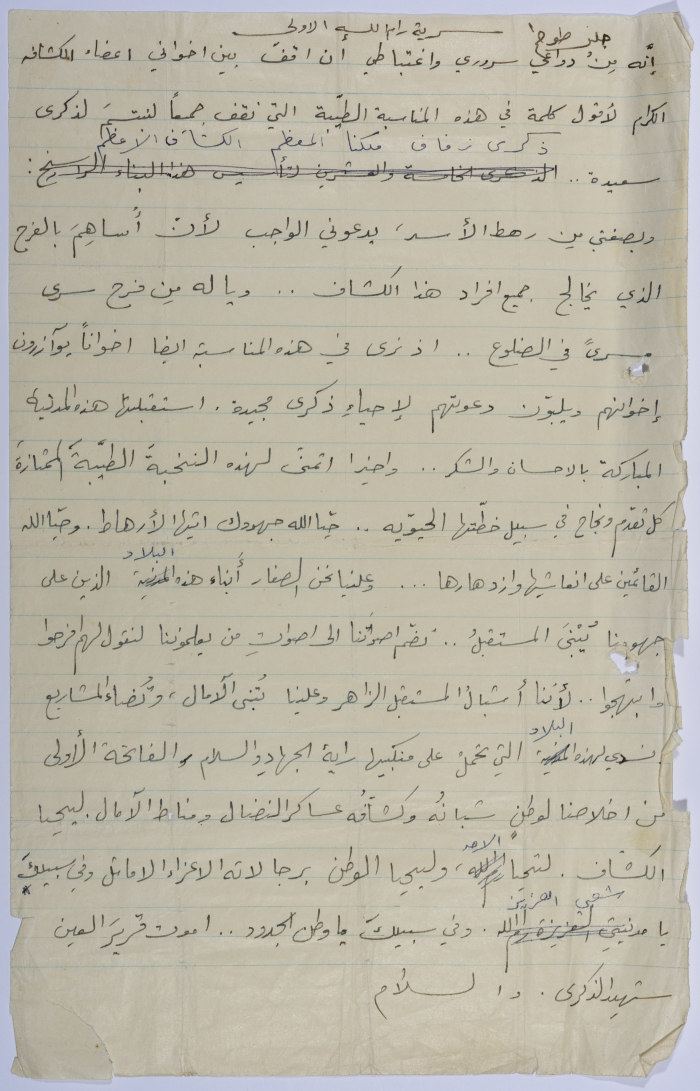 سرية رام الله الاولى
إنَّه مِنْ دواعي سروري واغتباطي أن اقفَ بين اخواني اعضاء الكشافه
الكرام لأقول كلمة في هذه المناسبة الطيّبة التي نقف جمعاً لنتسمَ لذكرى
ذكرى زفاف ملكنا المعظم الكشاف الاعظم
سعيدة .. الذكرى الخامسة والعشرين لتأسيس هذا البناء الراسخ :
وبصفتي من رهط الأسد، يدعوني الواجب لأن أُساهِمَ بالفرح
الذي يخالج جميع افراد هذا الكشاف .. وياله مِن فرح سرى
مسرىً في الضلوع .. اذ نرى في هذه المناسبة ايضا اخواناً يوآزرون
إخوانهم ويلبّون دعوتهم لإحياءِ ذكرى مجيدة . استقبلتها هذه المدينة
المباركة بالاحسان والشكر .. واخيرا اتمنى لهذه النخبةَ الطيّبةَ الممتازةَ
كل تقدّم ونجاح في سبيل خطّتها الحيوّيه .. حيّا الله جهودك ايتها الأرهاط . وحيّا الله
القائمين على انعاشها وازدهارها ... وعلينا نحن الصغار أبناء هذه المدينة البلاد الذين على
جهودنا يُبْنَى المستقبلُ .. نضم اصواتَنا الى اصواتِ من يعلموننا لنقول لهم افرحوا
وابتهجوا .. لأننا أشبالُ المستقبل الزاهر وعلينا تُبنى الآمال، وتُضاء المشاريع
نسدي لهذه المدينة البلاد التي تحملُ على منكبيها راية الجهاد والسلام والفاتحة الأولى
من اخلاصنا لوطنٍ شبانُه وكشافُه عساكر النضال ومناط الآمال . ليحيا
الكشّاف . لتحيا رام الله الامة، وليحيا الوطن برجالاته الاعزاء الاماثل وفي سبيلكَ
شعبي العزيز
يا مدينتي العزيزة رام الله . وفي سبيلكَ يا وطن الجدود .. اموت قريرَ العين
شهيد الذكرى . والسلام